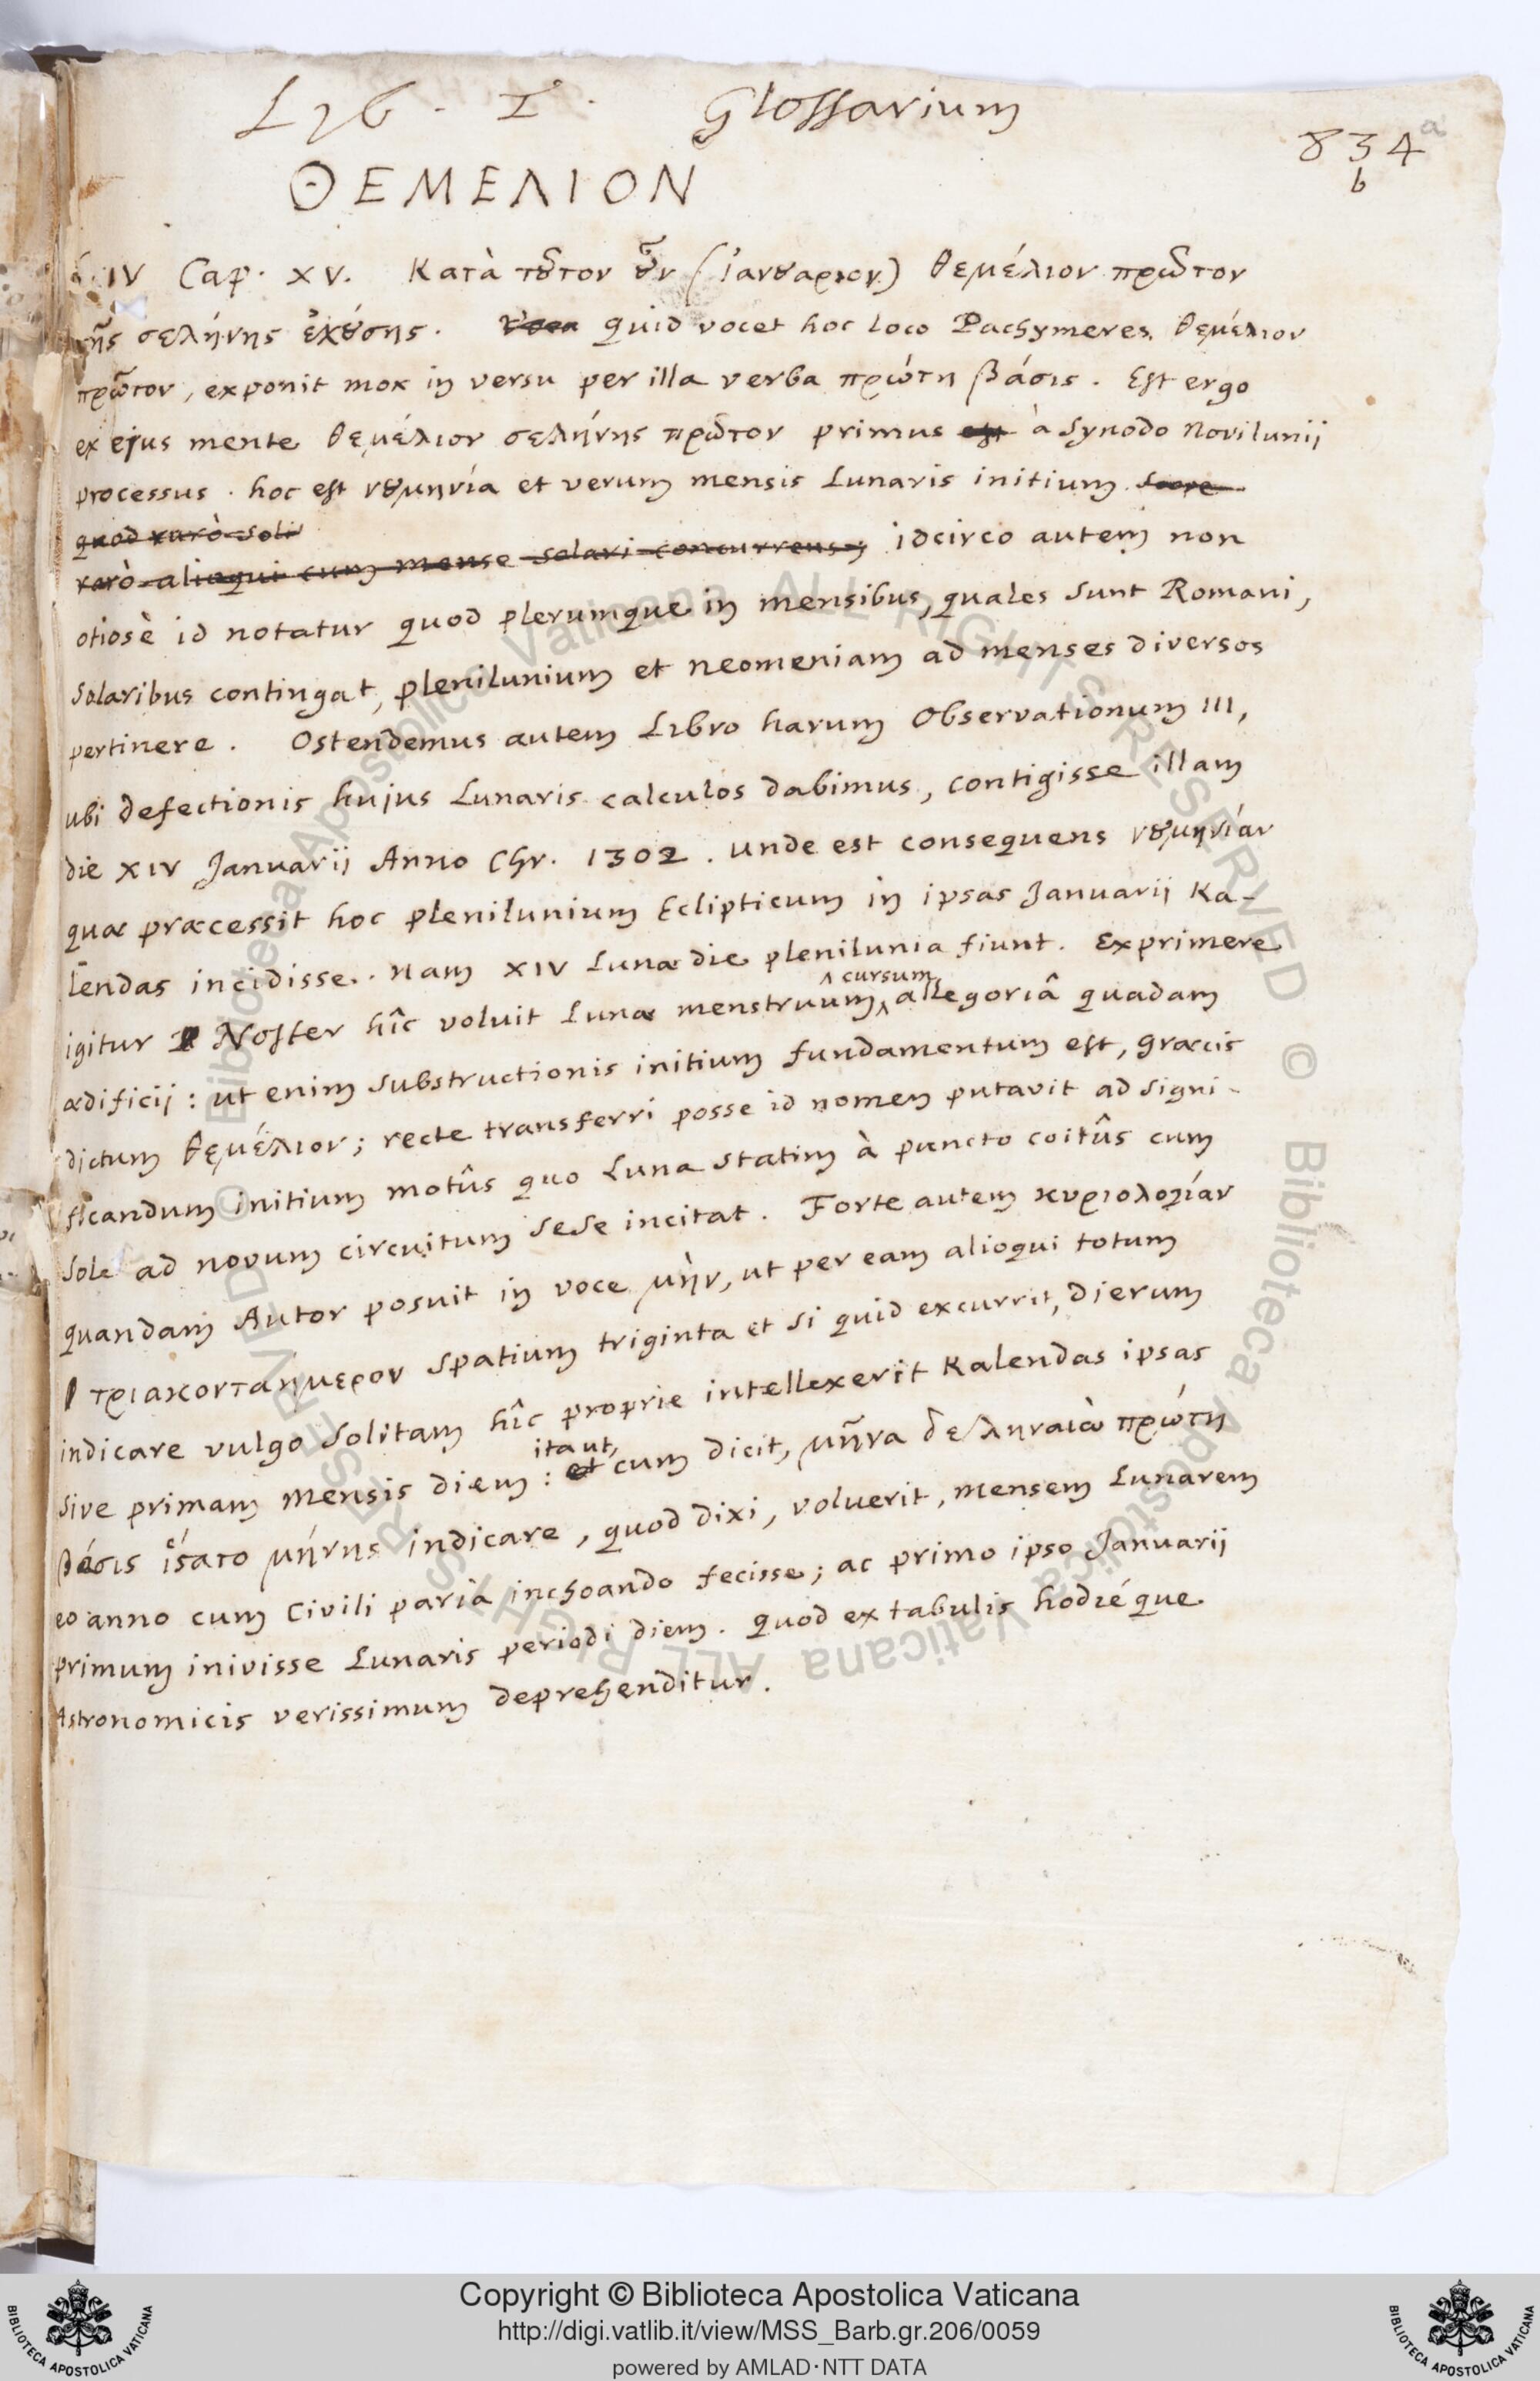 Lib. I. Glossarium
834 a
b
ΘΕΜΕΛΙΟΝ
IV Cap. XV. Κατὰ τȣ͂τον ȣ͂ν (ἰανȣαριον) θεμέλιον πρῶτον
τῆς σελήνης ἐχȣ́σης. quid vocet hoc loco Pachymeres θεμέλιον
πρῶτον, exponit mox in versu per illa verba πρώτη βάσις. Est ergo
ex ejus mente θεμέλιον σελήνης πρῶτον primus est à Synodo Novilunii
processus. hoc est νȣμηνία et verum mensis Lunaris initium. saepe
quod rarò soli
rarò alioqui cum mense solari concurrens, idcirco autem non
otiosè id notatur quod plerumque in mensibus, quales sunt Romani,
solaribus contingat, plenilunium et neomeniam ad menses diversos
pertinere. Ostendemus autem Libro harum Observationum III,
ubi defectionis hujus Lunaris calculos dabimus, contigisse illam
die XIV Januarii Anno Chr. 1302. unde est consequens νȣμηνίαν
quae praecessit hoc plenilunium Eclipticum in ipsas Januarii Ka-
lendas incidisse. Nam XIV Lunae die plenilunia fiunt. Exprimere
igitur Noster hîc voluit Lunae menstruum ^ cursum allegoriâ quadam
aedificii: ut enim substructionis initium fundamentum est, graecis
dictum θεμέλιον; recte transferri posse id nomen putavit ad signi-
ficandum initium motûs quo Luna statim à puncto coitûs cum
Sole ad novum circuitum sese incitat. Forte autem κυριολογίαν
quandam Autor posuit in voce μὴν, ut per eam alioqui totum
τριακονταήμερον spatium triginta et si quid excurrit, dierum
indicare vulgo solitam hîc proprie intellexerit Kalendas ipsas
sive primam Mensis diem: et ita ut, cum dicit, μῆνα δε ληναιὼ πρώτη
βάσις ἵστατο μήνης indicare, quod dixi, voluerit, mensem Lunarem
eo anno cum Civili paria inchoando fecisse; ac primo ipso Januarii
primum inivisse Lunaris periodi diem. quod ex tabulis hodiéque
Astronomicis verissimum deprehenditur.
Copyright © Biblioteca Apostolica Vaticana
http://digi.vatlib.it/view/MSS_Barb.gr.206/0059
powered by AMLAD·NTT DATA